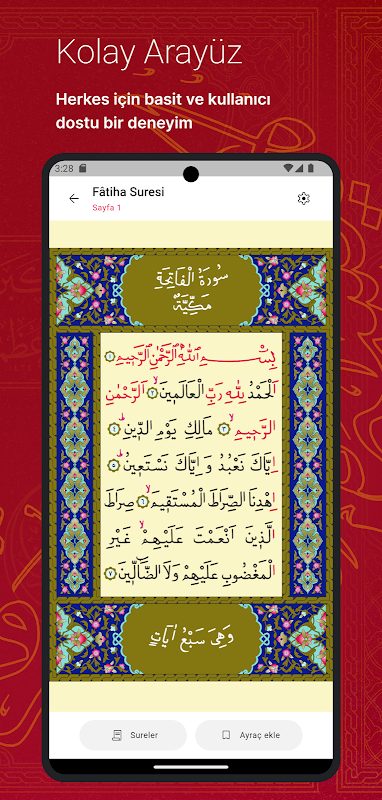 Kolay Arayüz
Herkes için basit ve kullanıcı
dostu bir deneyim
3:28
Fâtiha Suresi
Sayfa 1
سُورَةُ الْفَاتِحَةِ
مَكِّيَّةٌ
بِسْمِ اللّٰهِ الرَّحْمٰنِ الرَّحٖيمِ ﴿١﴾
اَلْحَمْدُ لِلّٰهِ رَبِّ الْعَالَمٖينَۙ ﴿٢﴾ اَلرَّحْمٰنِ
الرَّحٖيمِۙ ﴿٣﴾ مَالِكِ يَوْمِ الدّٖينِؕ ﴿٤﴾
اِيَّاكَ نَعْبُدُ وَ اِيَّاكَ نَسْتَعٖينُؕ ﴿٥﴾
اِهْدِنَا الصِّرَاطَ الْمُسْتَقٖيمَۙ ﴿٦﴾ صِرَاطَ
الَّذٖينَ اَنْعَمْتَ عَلَيْهِمْۙ غَيْرِ
الْمَغْضُوبِ عَلَيْهِمْ وَلَا الضَّٓالّٖينَ ﴿٧﴾
وَهِىَ سَبْعُ اٰيَاتٍ
Sureler
Ayraç ekle